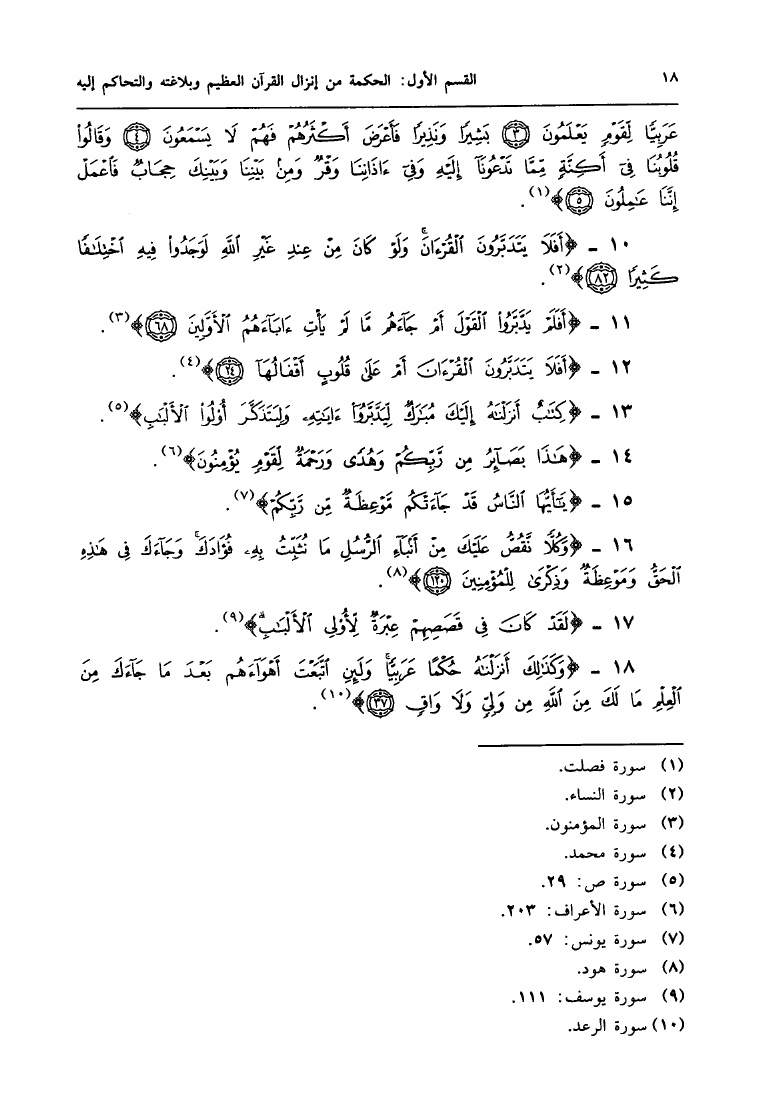 ١٨ القسم الأول: الحكمة من إنزال القرآن العظيم وبلاغته والتحاكم إليه
عَرَبِيًّا لِّقَوْمٍ يَعْلَمُونَ ﴿٣﴾ بَشِيرًا وَنَذِيرًا فَأَعْرَضَ أَكْثَرُهُمْ فَهُمْ لَا يَسْمَعُونَ ﴿٤﴾ وَقَالُوا۟
قُلُوبُنَا فِىٓ أَكِنَّةٍ مِّمَّا تَدْعُونَآ إِلَيْهِ وَفِىٓ ءَاذَانِنَا وَقْرٌ وَمِنۢ بَيْنِنَا وَبَيْنِكَ حِجَابٌ فَٱعْمَلْ
إِنَّنَا عَـٰمِلُونَ ﴿٥﴾﴾(١).
١٠ - ﴿أَفَلَا يَتَدَبَّرُونَ ٱلْقُرْءَانَ ۚ وَلَوْ كَانَ مِنْ عِندِ غَيْرِ ٱللَّهِ لَوَجَدُوا۟ فِيهِ ٱخْتِلَـٰفًا
كَثِيرًا ﴿٨٢﴾﴾(٢).
١١ - ﴿أَفَلَمْ يَدَّبَّرُوا۟ ٱلْقَوْلَ أَمْ جَآءَهُم مَّا لَمْ يَأْتِ ءَابَآءَهُمُ ٱلْأَوَّلِينَ ﴿٦٨﴾﴾(٣).
١٢ - ﴿أَفَلَا يَتَدَبَّرُونَ ٱلْقُرْءَانَ أَمْ عَلَىٰ قُلُوبٍ أَقْفَالُهَآ ﴿٢٤﴾﴾(٤).
١٣ - ﴿كِتَـٰبٌ أَنزَلْنَـٰهُ إِلَيْكَ مُبَـٰرَكٌ لِّيَدَّبَّرُوٓا۟ ءَايَـٰتِهِۦ وَلِيَتَذَكَّرَ أُو۟لُوا۟ ٱلْأَلْبَـٰبِ﴾(٥).
١٤ - ﴿هَـٰذَا بَصَآئِرُ مِن رَّبِّكُمْ وَهُدًى وَرَحْمَةٌ لِّقَوْمٍ يُؤْمِنُونَ﴾(٦).
١٥ - ﴿يَـٰٓأَيُّهَا ٱلنَّاسُ قَدْ جَآءَتْكُم مَّوْعِظَةٌ مِّن رَّبِّكُمْ﴾(٧).
١٦ - ﴿وَكُلًّا نَّقُصُّ عَلَيْكَ مِنْ أَنۢبَآءِ ٱلرُّسُلِ مَا نُثَبِّتُ بِهِۦ فُؤَادَكَ ۚ وَجَآءَكَ فِى هَـٰذِهِ
ٱلْحَقُّ وَمَوْعِظَةٌ وَذِكْرَىٰ لِلْمُؤْمِنِينَ ﴿١٢٠﴾﴾(٨).
١٧ - ﴿لَقَدْ كَانَ فِى قَصَصِهِمْ عِبْرَةٌ لِّأُو۟لِى ٱلْأَلْبَـٰبِ ۗ﴾(٩).
١٨ - ﴿وَكَذَٰلِكَ أَنزَلْنَـٰهُ حُكْمًا عَرَبِيًّا ۚ وَلَئِنِ ٱتَّبَعْتَ أَهْوَآءَهُم بَعْدَ مَا جَآءَكَ مِنَ
ٱلْعِلْمِ مَا لَكَ مِنَ ٱللَّهِ مِن وَلِىٍّ وَلَا وَاقٍ ﴿٣٧﴾﴾(١٠).
(١) سورة فصلت.
(٢) سورة النساء.
(٣) سورة المؤمنون.
(٤) سورة محمد.
(٥) سورة ص: ٢٩.
(٦) سورة الأعراف: ٢٠٣.
(٧) سورة يونس: ٥٧.
(٨) سورة هود.
(٩) سورة يوسف: ١١١.
(١٠) سورة الرعد.